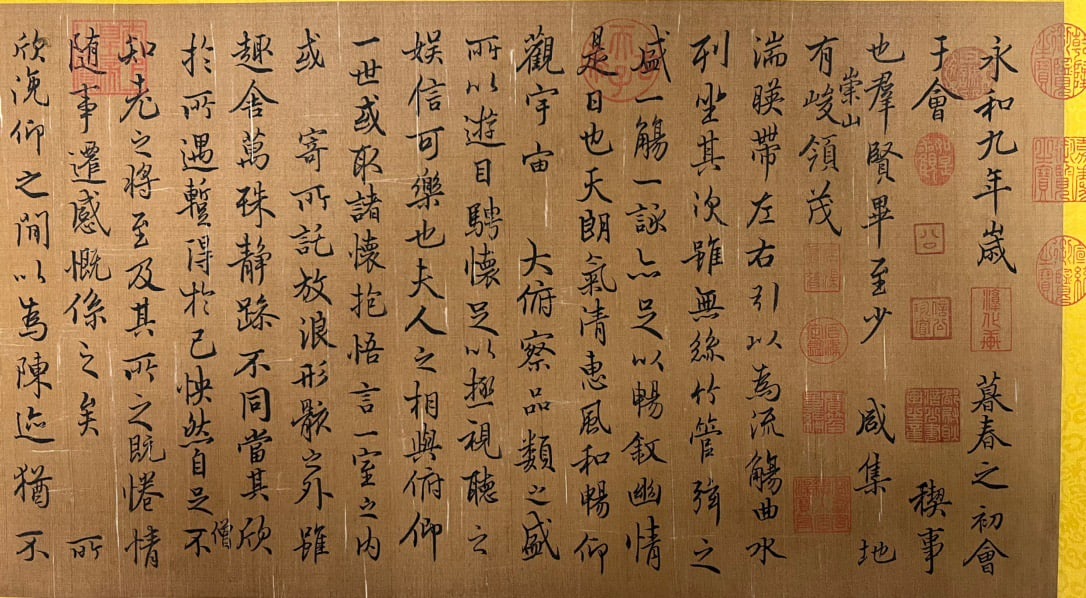 永和九年歲 暮春之初會
于會 稧事
也羣賢畢至少 咸集 地
有崇山峻領茂
湍暎帶左右引以為流觴曲水
列坐其次雖無絲竹管弦之
盛一觴一詠亦足以暢敘幽情
是日也天朗氣清惠風和暢仰
觀宇宙 大俯察品類之盛
所以遊目騁懷足以極視聽之
娛信可樂也夫人之相與俯仰
一世或取諸懷抱悟言一室之內
或 寄所託放浪形骸之外雖
趣舍萬殊静躁不同當其欣
於所遇蹔得於己怏然自足不
僧
知老之將至及其所之既惓情
随事遷感慨係之矣 所
欣俛仰之閒以為陳迹猶不